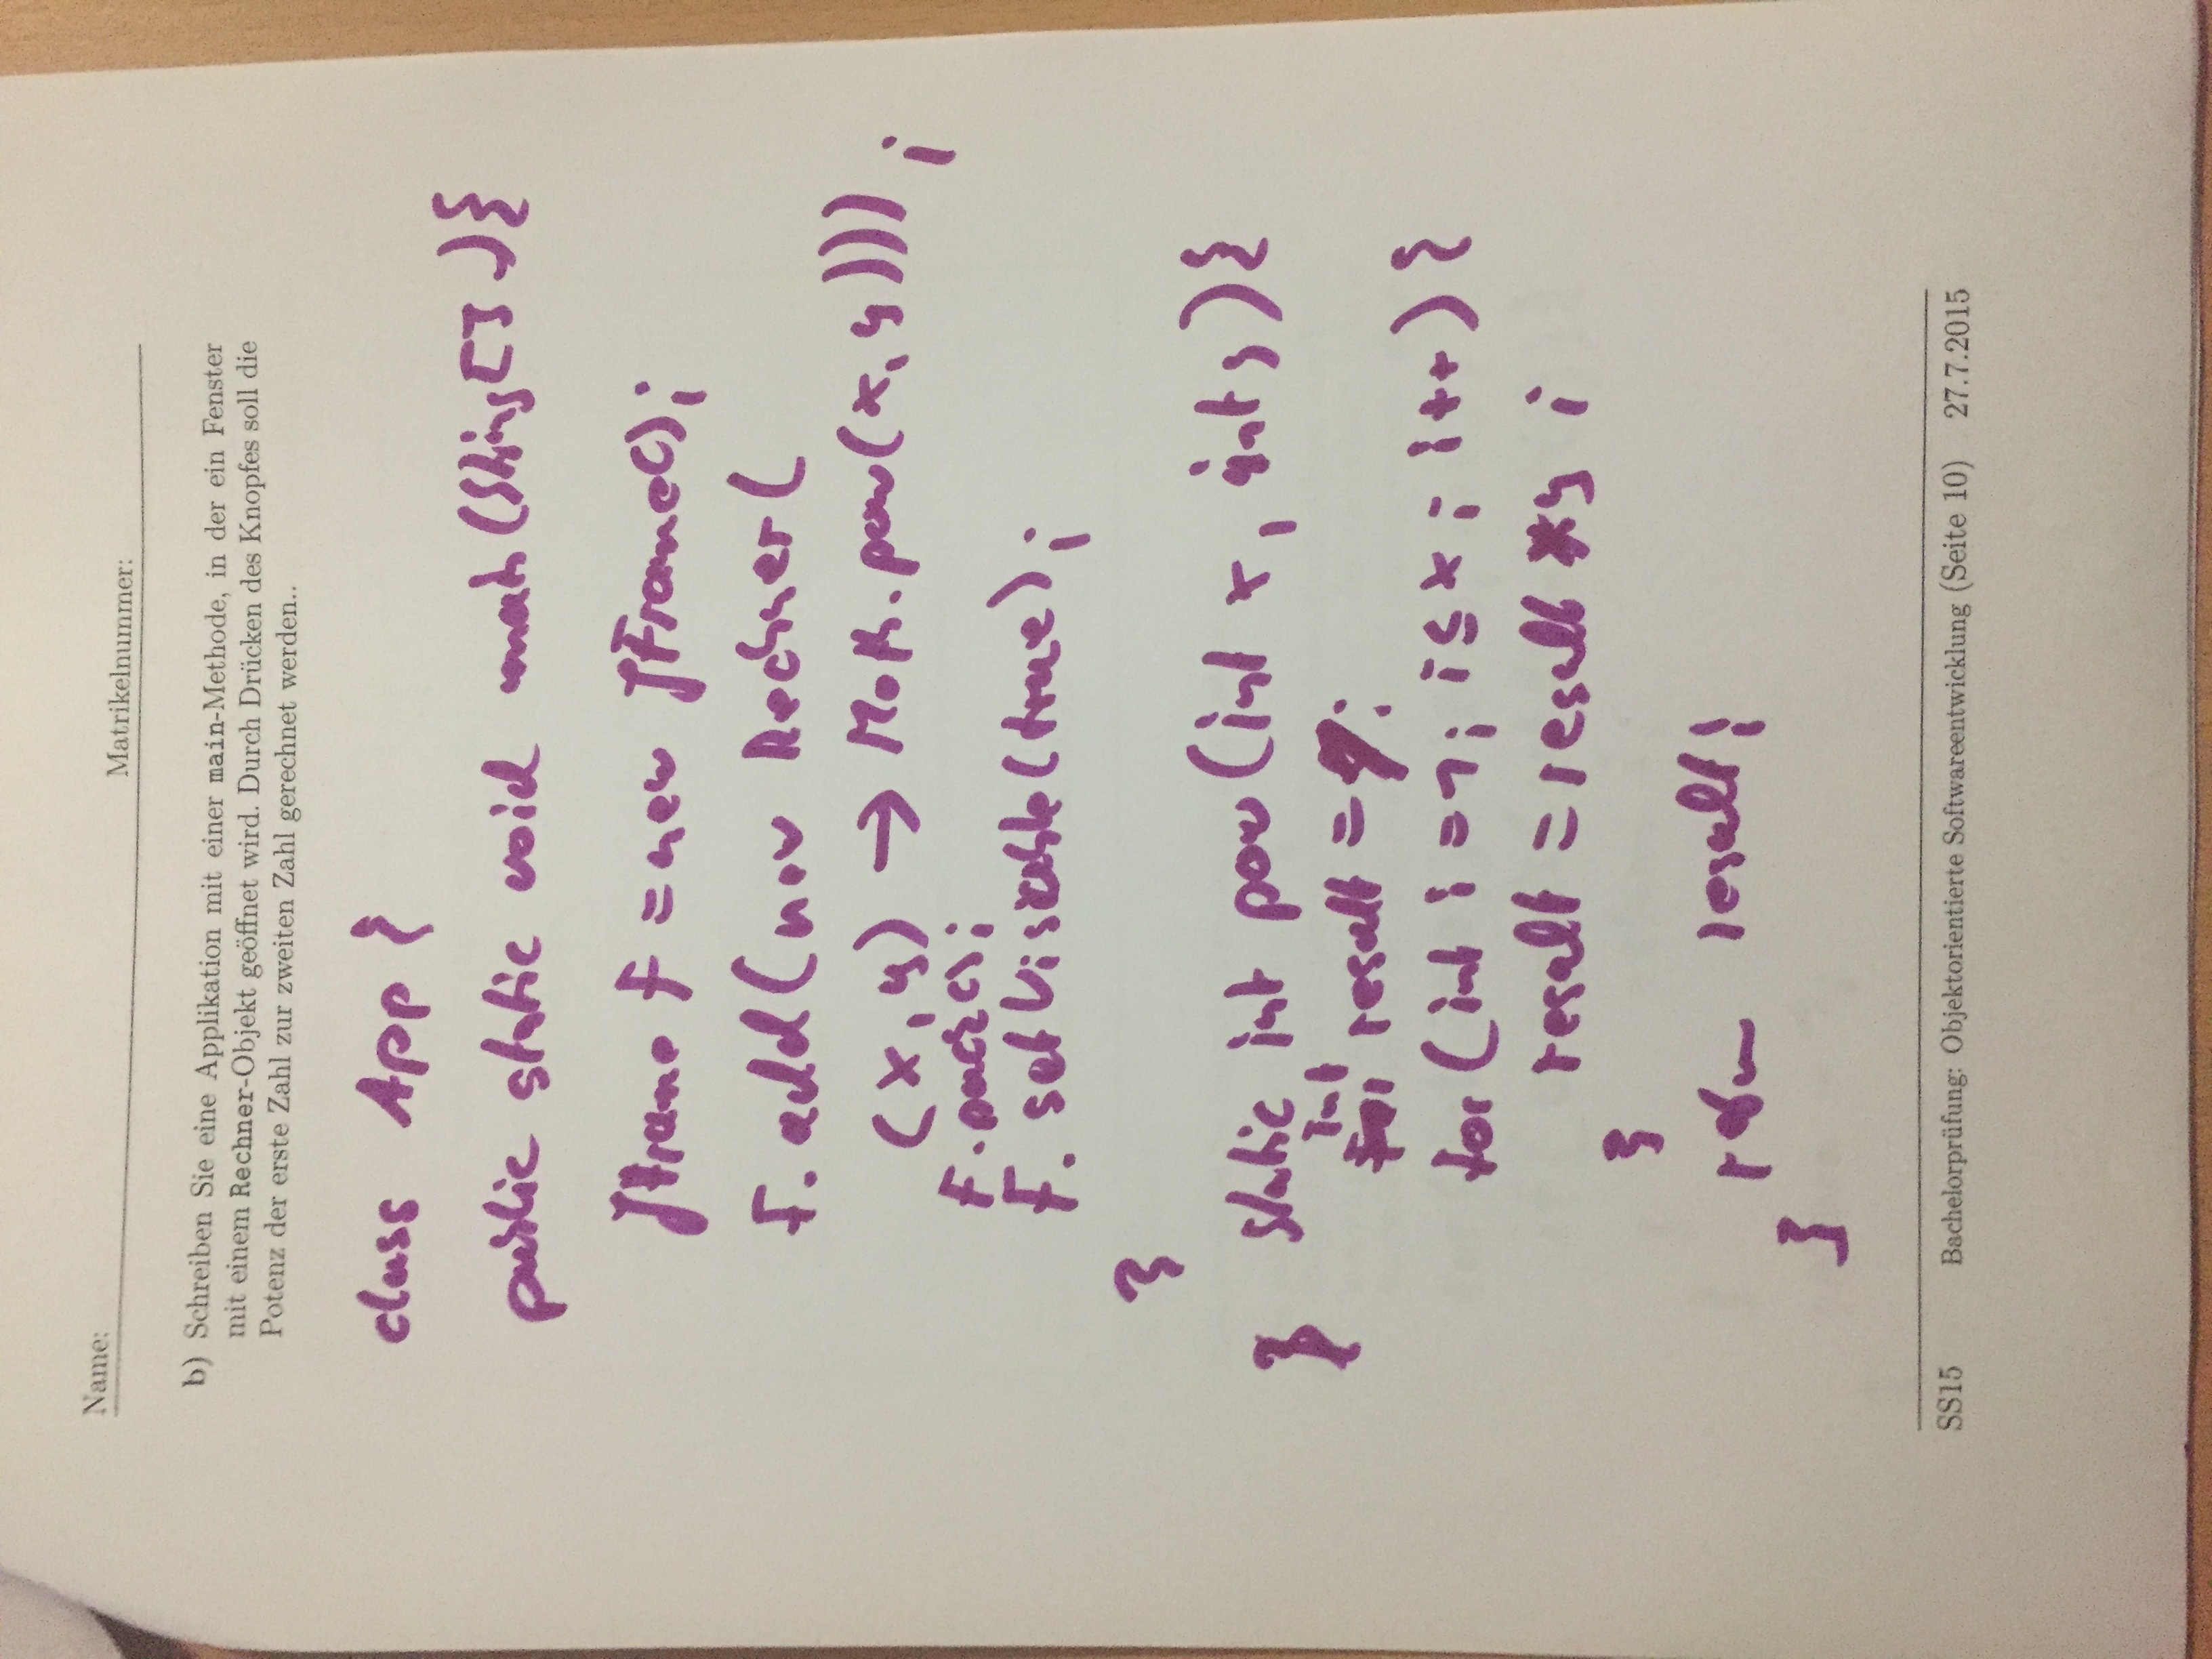 Name:
Matrikelnummer:
b) Schreiben Sie eine Applikation mit einer main-Methode, in der ein Fenster
mit einem Rechner-Objekt geöffnet wird. Durch Drücken des Knopfes soll die
Potenz der erste Zahl zur zweiten Zahl gerechnet werden..
class App {
public static void main(String[] ){
JFrame f = new JFrame();
f. add(new Rechner(
(x, y) → Math. pow(x, y)));
f. pack();
f. setVisible(true);
}
static int pow (int x, int y){
int result = 1;
for (int i = 1; i ≤ x; i++){
result = result * y;
}
return result;
}
}
SS15 Bachelorprüfung: Objektorientierte Softwareentwicklung (Seite 10) 27.7.2015